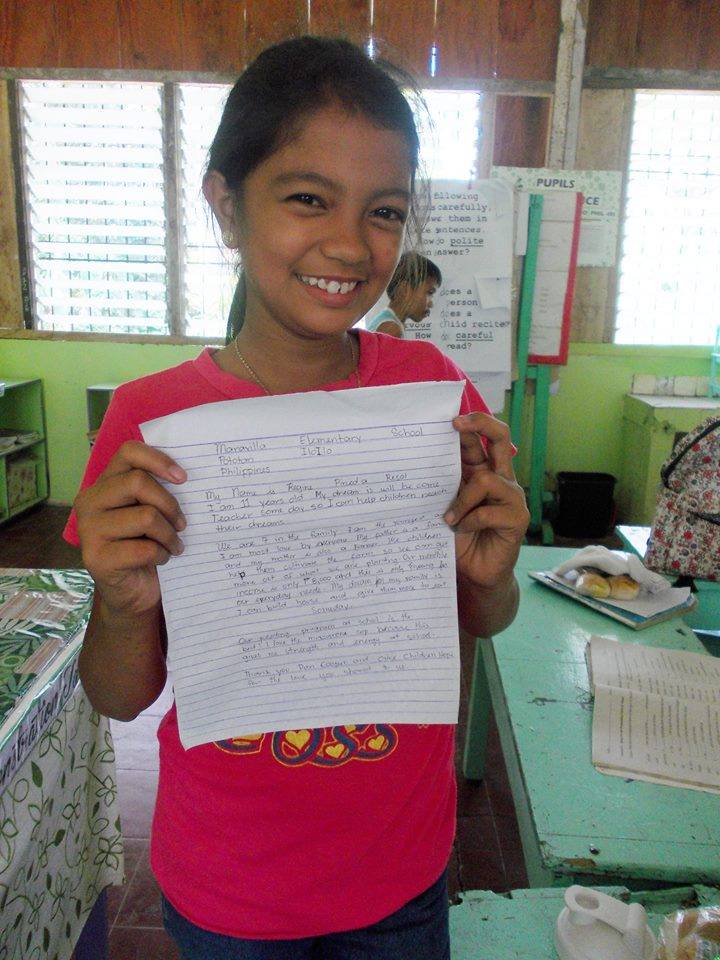 Maravilla Elementary School
Pototan IloIlo
Philippines
My Name is Regine Recol
I am 11 years old My dream is will be come
Teacher some day so I can help children reach
their dreams
We are 7 in the family I am the youngest and
I am most love by everyone My father is a farmer
and my mother is also a farmer. We children
help them cultivate the farms so we can get
more out of what we are planting Our monthly
income is only ₱8,000 and this is only
our everyday needs. My dream for my family is
I can build house and give them more to eat
Someday.
Our feeding program at school is the
best! I love the macaroni sop because this
give me strength and energy at school.
Thank you and Children Hope
for the love you shared to us.
following
carefully.
them in
sentences.
How do polite
answer?
does a
person
does a
child recite?
How careful
read?
PUPILS